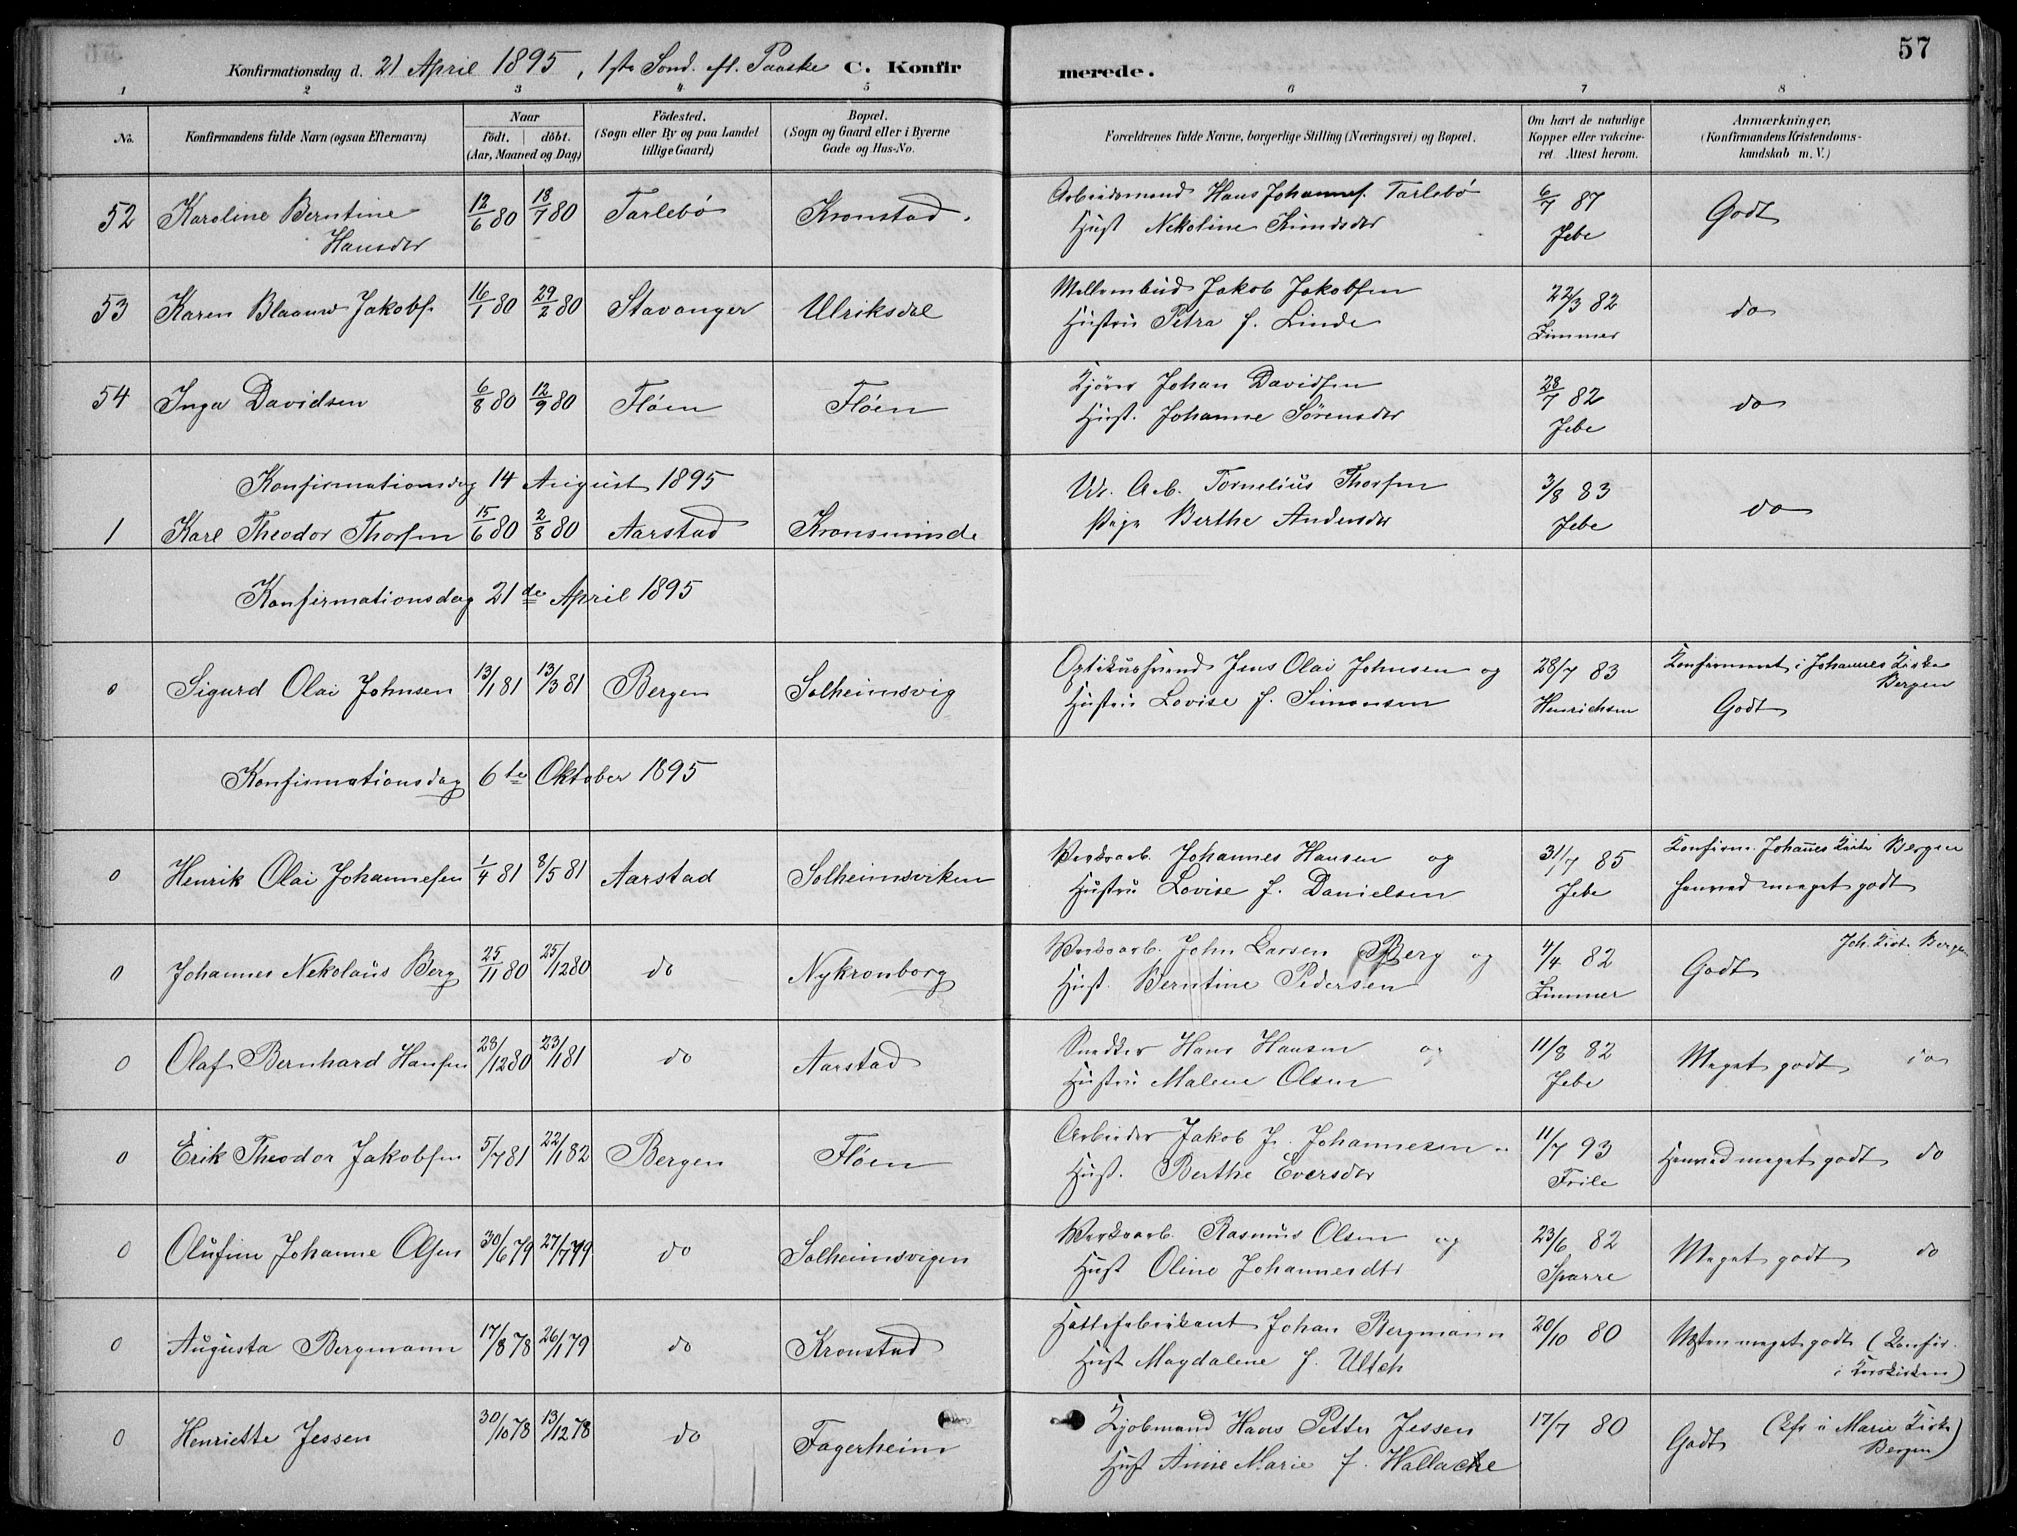 57
Konfirmationsdag d. 21 April 1895, 1ste Sönd. ef. Paaske C. Konfirmerede.
1 2 3 4 5 6 7 8
No. Konfirmandens fulde Navn (ogsaa Efternavn) Naar födt. döbt. (Aar, Maaned og Dag) Födested. (Sogn eller By og paa Landet tillige Gaard) Bopæl. (Sogn og Gaard eller i Byerne Gade og Hus-No. Forældrenes fulde Navne, borgerlige Stilling (Næringsvei) og Bopæl. Om havt de naturlige Kopper eller vakcineret. Attest herom. Anmærkninger, (Konfirmandens Kristendomskundskab m. V.)
52 Karoline Berntine Hansdtr 12/6 80 18/7 80 Tarlebö Kronstad. Arbeidsmand Hans Johannes. Tarlebö Hust Nekoline Knudsdtr 6/7 87 Jebe Godt
53 Karen Blaauw Jakobs. 16/1 80 29/2 80 Stavanger Ulriksdal Mellembud Jakob Jakobsen Hustru Petra f. Linde 22/3 82 Zimmer do
54 Inga Davidsen 6/8 80 12/9 80 Flöen Flöen Kjörer Johan Davidsen Hust. Johanne Sörensdtr 28/7 82 Jebe do
Konfirmationsdag 14 August 1895
1 Karl Theodor Thorsen 15/6 80 2/8 80 Aarstad Kronsminde Ur. Arb. Tornelius Thorsen Pige Berthe Andersdtr 3/8 83 Jebe do
Konfirmationsdag 21de April 1895
0 Sigurd Olai Johnsen 13/1 81 13/3 81 Bergen Solheimsvig Optikussvend Jens Olai Johnsen og Hustru Lovise f. Simonsen 28/7 83 Henrichsen Konfirmeret i Johannes Kirke Bergen Godt
Konfirmationsdag 6te Oktober 1895
0 Henrik Olai Johannesen 1/4 81 8/5 81 Aarstad Solheimsviken Verksarb. Johannes Hansen og Hustru Lovise f. Danielsen 31/7 85 Jebe Konfirm. Johannes Kirke Bergen henved meget godt
0 Johannes Nekolaus Berg 25/11 80 25/12 80 do Nykronborg Verksarb. John Larsen Berg og Hust. Berntine Pedersen 4/4 82 Zimmer Godt Joh. Kirk. Bergen
0 Olaf Bernhard Hansen 23/12 80 23/1 81 do Aarstad Snedker Hans Hansen og Hustru Malene Olsen 11/8 82 Jebe Meget godt do
0 Erik Theodor Jakobsen 5/7 81 22/1 82 Bergen Flöen Arbeider Jakob J. Johannesen Hust. Berthe Eversdtr 11/7 93 Friele Henved meget godt do
0 Olufine Johanne Olsen 30/6 79 27/7 79 do Solheimsvigen Verksarb. Rasmus Olsen og Hust Oline Johannesdtr 23/6 82 Sparre Meget godt do
0 Augusta Bergmann 17/8 78 26/1 79 do Kronstad Hattefabrikant Johan Bergmann Hust Magdalene f. Ultch 20/10 80 Næsten meget godt (Konfir. i Korskirken)
0 Henriette Jessen 30/10 78 13/12 78 do Fagerheim Kjöbmand Hans Petter Jessen Hust Anne Marie f. Wallache 17/7 80 Godt (Kfr i Marie Kirke Bergen)